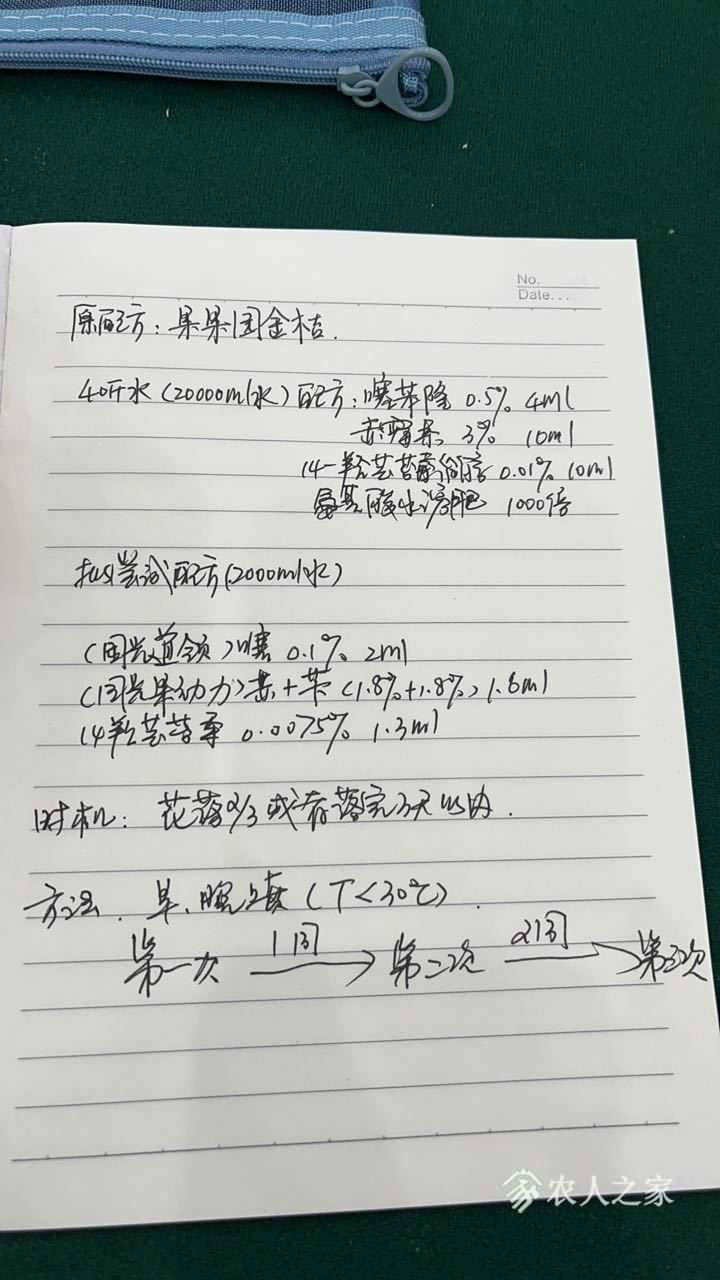 No.
Date...
原配方：果果园金桔.
40斤水(20000ml水)配方：噻苯隆 0.5% 4ml
赤霉素 3% 10ml
14-羟芸苔素甾醇 0.01% 10ml
氨基酸水溶肥 1000倍
拟尝试配方(2000ml水)
(国光道领)噻 0.1% 2ml
(国光果动力)赤+苄(1.8%+1.8%) 1.6ml
14羟芸苔素 0.0075% 1.3ml
时机：花落2/3或者落完3天以内.
方法. 早、晚喷(T<30℃).
第一次 1周 第二次 2周 第三次
农人之家